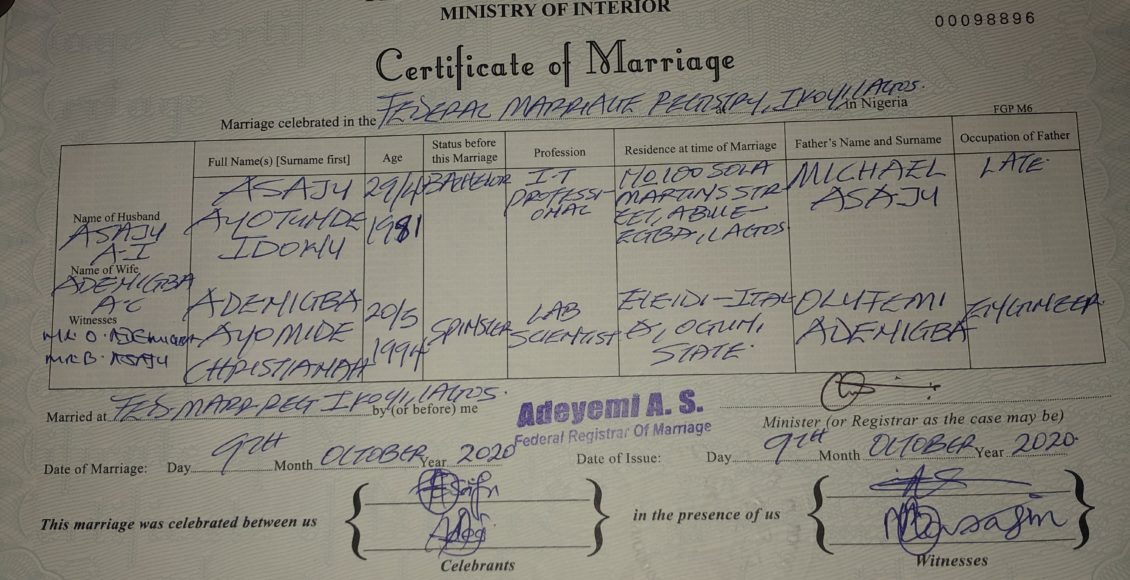 MINISTRY OF INTERIOR
00098896
Certificate of Marriage
Marriage celebrated in the FEDERAL MARRIAGE REGISTRY, IKOYI, LAGOS. in Nigeria
FGP M6
Full Name(s) [Surname first]
Age
Status before
this Marriage
Profession
Residence at time of Marriage
Father's Name and Surname
Occupation of Father
Name of Husband
ASAJU
A-I
ASAJU
AYOTUNDE
IDOWU
29/4
1981
BACHELOR
I.T
PROFESSI-
ONAL
NO 100 SOLA
MARTINS STR
EET, ABULE-
EGBA, LAGOS
MICHAEL
ASAJU
LATE
Name of Wife
ADEMIGBA
A-C
ADEMIGBA
AYOMIDE
CHRISTIANAH
20/5
1994
SPINSTER
LAB
SCIENTIST
OGUN,
STATE
OLUFEMI
ADEMIGBA
ENGINEER
Witnesses
MR O. ADEMIGBA
MR B. ASAJU
Married at FED MARR REG IKOYI, LAGOS. by (or before) me
Adeyemi A. S.
Federal Registrar Of Marriage
Minister (or Registrar as the case may be)
Date of Marriage: Day 9TH Month OCTOBER Year 2020
Date of Issue: Day 9TH Month OCTOBER Year 2020
This marriage was celebrated between us
in the presence of us
Celebrants
Witnesses